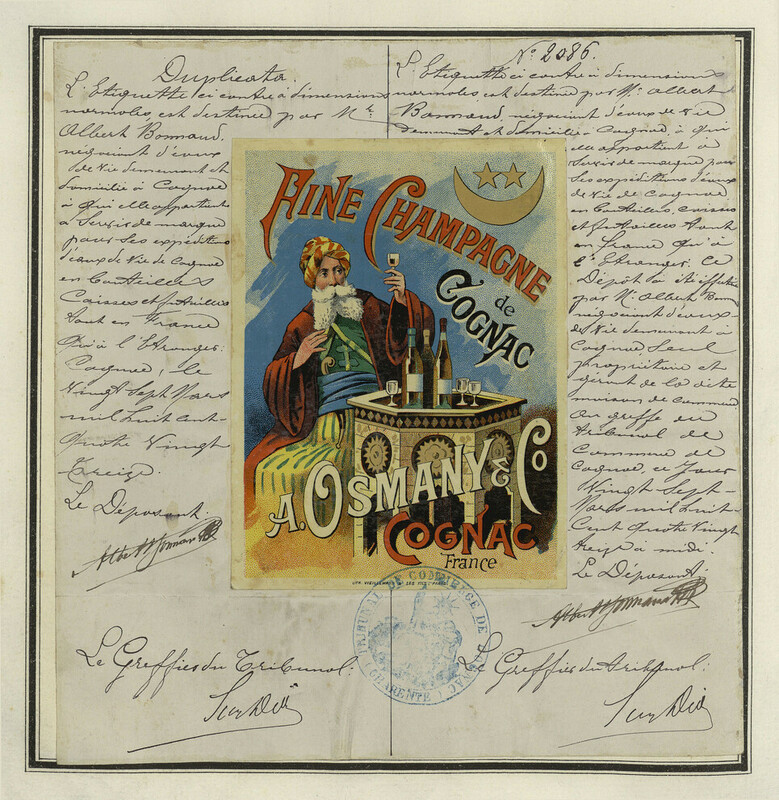 Duplicata.
L'Etiquette ci contre à dimensions
normales est destinée par Mr
Albert Bonnaud,
négociant d'eaux
de vie demeurant et
domicilié à Cognac
à qui elle appartient
à Servir de marque
pour ses expéditions
d'eaux de vie de Cognac
en bouteilles
Caisses et futailles
tant en France
qu'à l'Etranger.
Cognac, le
Vingt Sept Mars
mil huit cent
quatre Vingt
treize.
Le Déposant.
Le Greffier du Tribunal:
No 2086.
L'Etiquette ci contre à dimensions
normales est destinée par Mr Albert
Bonnaud, négociant d'eaux de vie
demeurant et domicilié à Cognac, à qui
elle appartient à
Servir de marque pour
ses expéditions d'eaux
de vie de Cognac
en bouteilles, caisses
et futailles tant
en france qu'à
l'Etranger. Ce
Dépôt a été effectué
par Mr Albert Bonnaud
négociant d'eaux-
de Vie demeurant à
Cognac, Seul
propriétaire et
gérant de la dite
maison de commerce
au greffe du
Tribunal de
Commerce de
Cognac, ce Jour
Vingt-Sept-
Mars mil huit
Cent quatre Vingt
treize à midi.
Le Déposant:
Le Greffier du tribunal:
FINE CHAMPAGNE
de
COGNAC
A. OSMANY & CO
COGNAC
France
TRIBUNAL DE COMMERCE DE COGNAC
(CHARENTE)